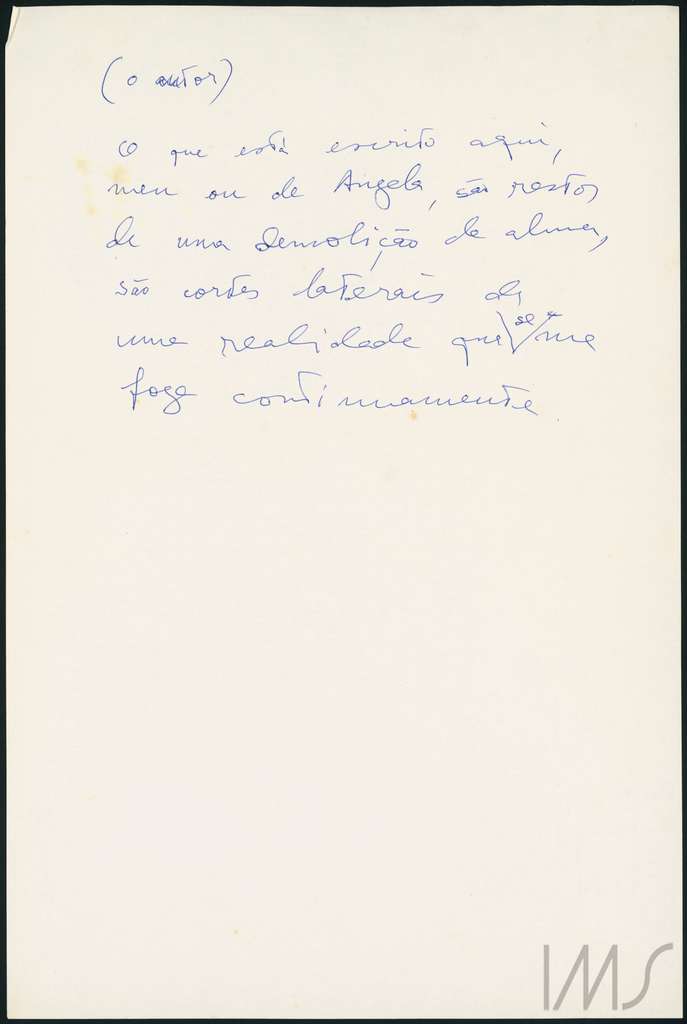 (o autor)
O que está escrito aqui,
meu ou de Angela, são restos
de uma demolição de alma,
são cortes laterais de
uma realidade que se me
foge continuamente
IMS